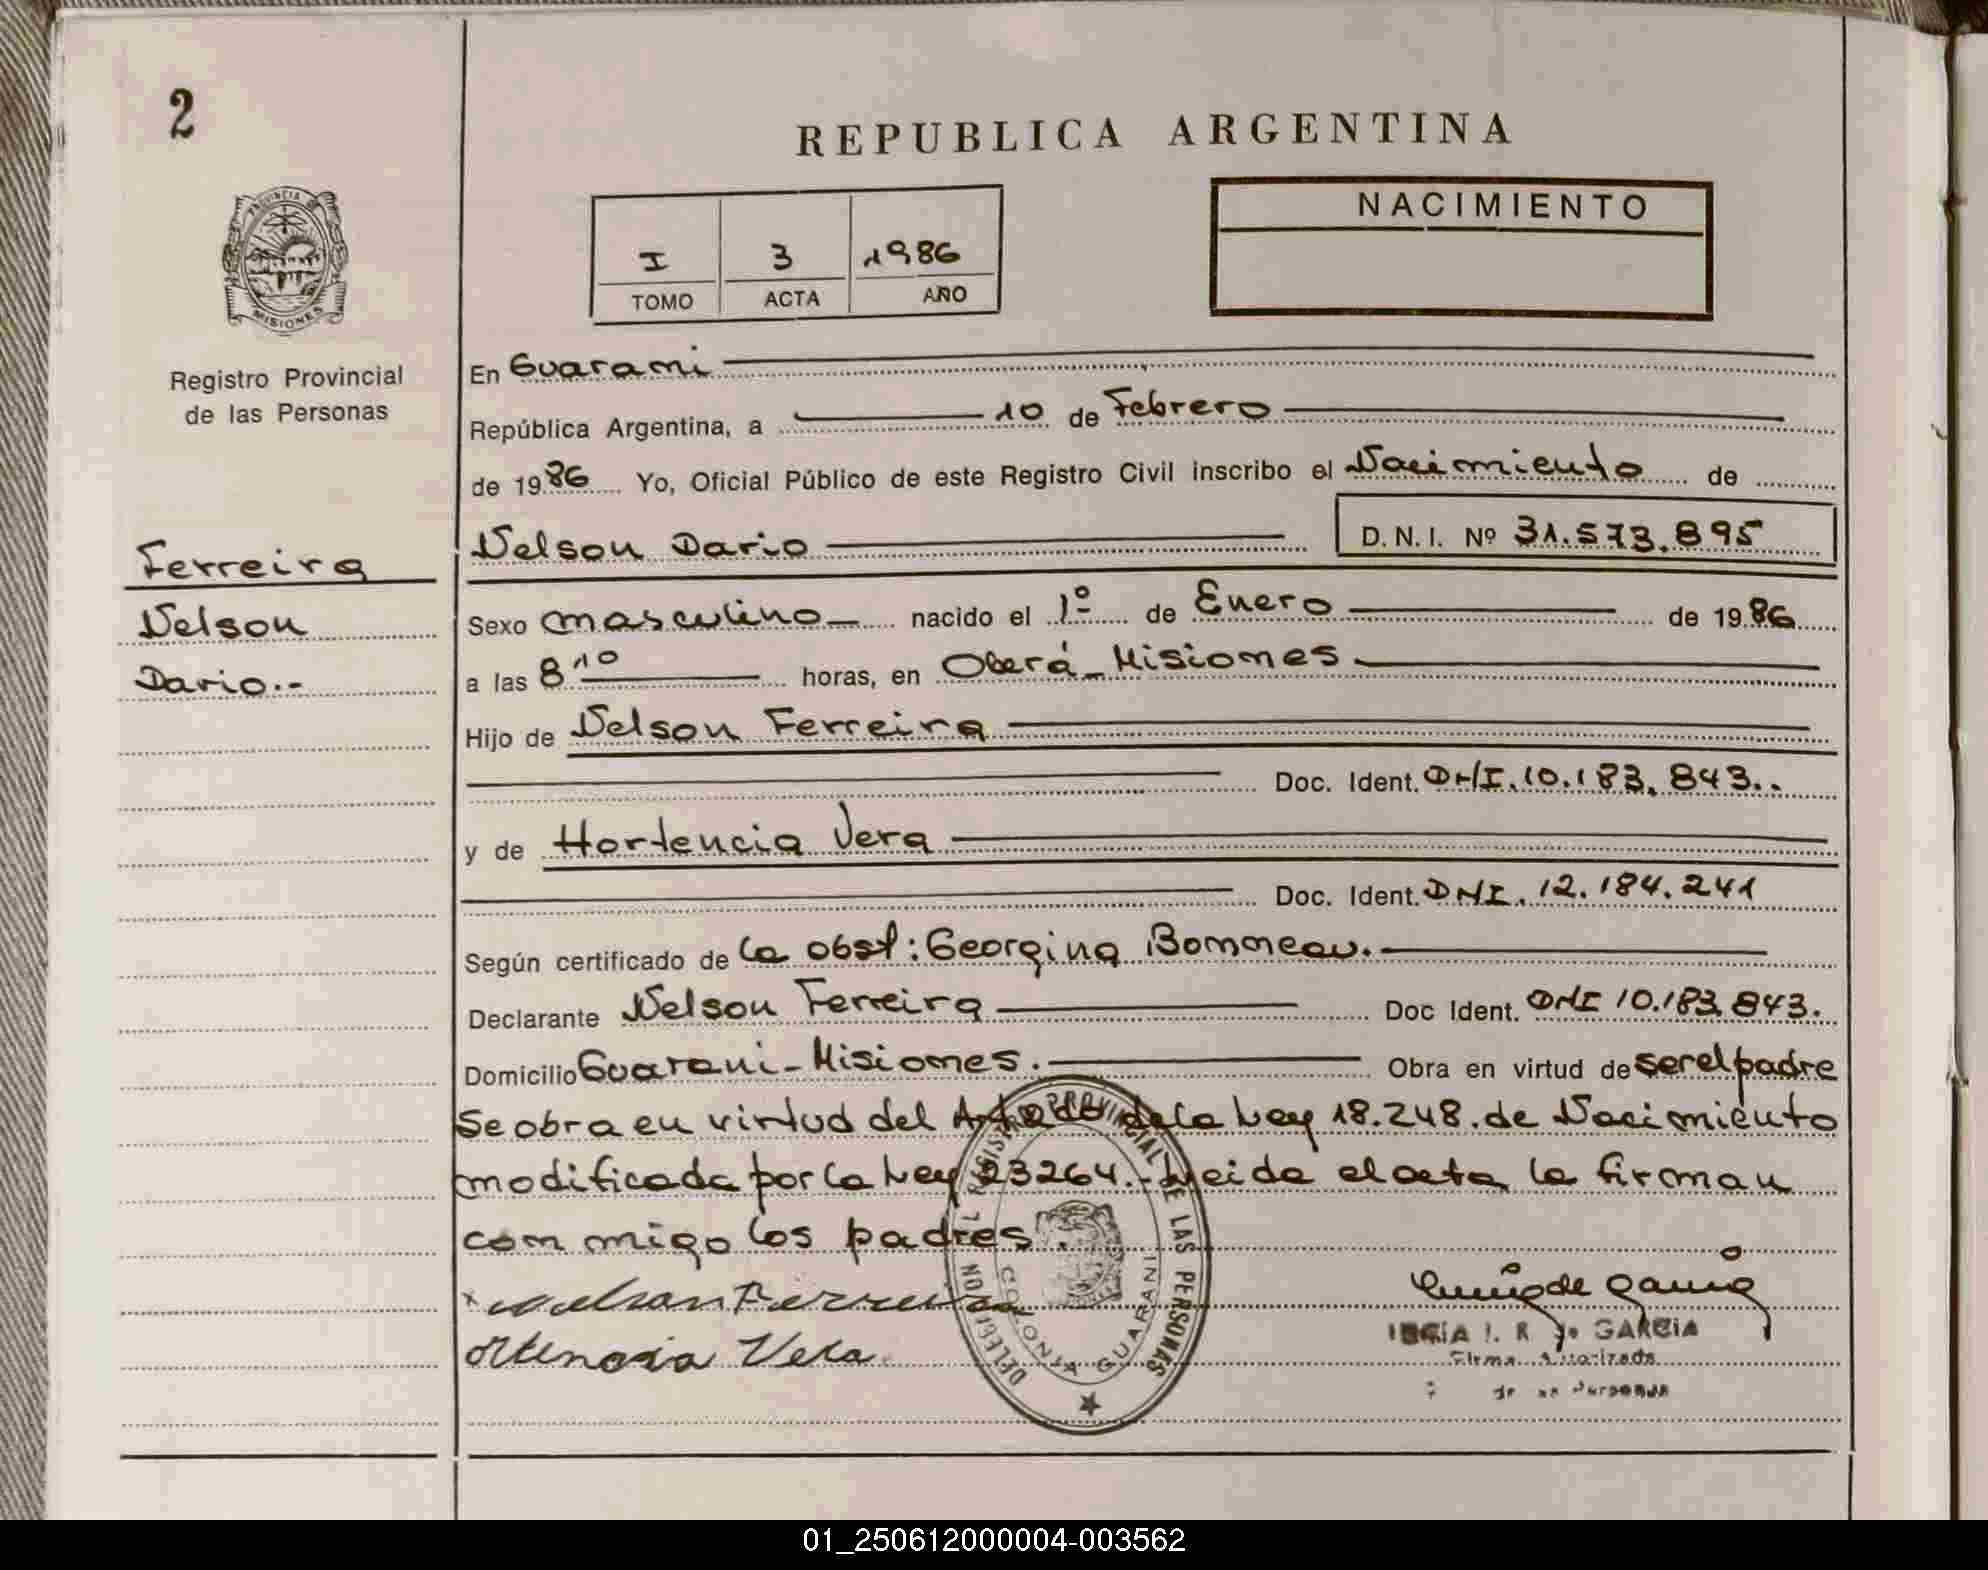 2
REPUBLICA ARGENTINA
PROVINCIA DE
MISIONES
Registro Provincial
de las Personas
I 3 1986
TOMO ACTA AÑO
NACIMIENTO
En Guarani
República Argentina, a 10 de Febrero
de 1986 Yo, Oficial Público de este Registro Civil inscribo el Nacimiento de
Nelson Dario D.N.I. Nº 31.573.895
Ferreira
Nelson
Dario.-
Sexo masculino nacido el 1º de Enero de 1986
a las 8 10 horas, en Oberá - Misiones
Hijo de Nelson Ferreira
Doc. Ident. DNI. 10.183.843..
y de Hortencia Vera
Doc. Ident. DNI. 12.184.241
Según certificado de la obst: Georgina Bommeau.
Declarante Nelson Ferreira Doc Ident. DNI 10.183.843.
Domicilio Guarani - Misiones. Obra en virtud de ser el padre
Se obra en virtud del de la Ley 18.248. de Nacimiento
modificada por la Ley 23264.- Leida el acta la firman
con migo los padres.
x Nelson Ferreira
Ortencia Vera
DELEGACION DEL REGISTRO PROVINCIAL DE LAS PERSONAS
COLONIA GUARANI
de Garcia
I. R. de GARCIA
Firma Autorizada
de las Personas
01_250612000004-003562